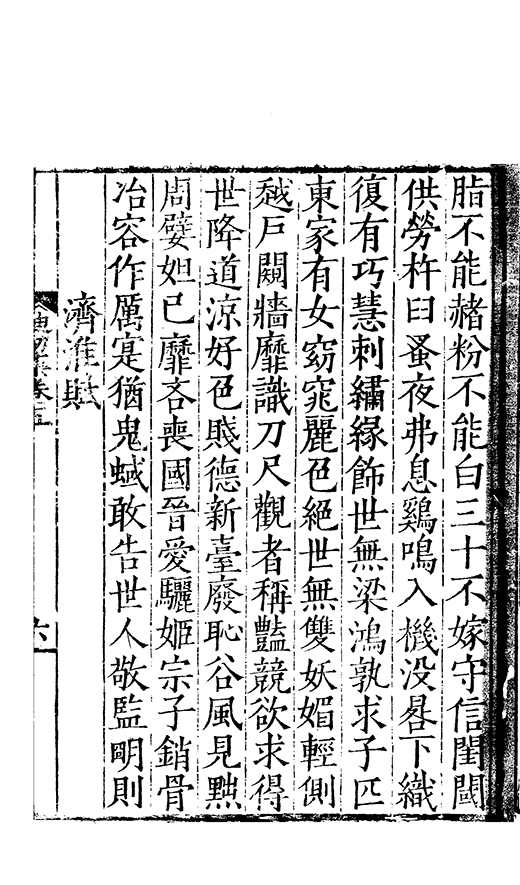 脂不能赭粉不能白三十不嫁守信閨閫
供勞杵臼蚤夜弗息鷄鳴入機没晷下織
復有巧慧刺繡緣飾世無梁鴻孰求子匹
東家有女窈窕麗色絶世無雙妖媚輕側
越戶闚牆靡識刀尺觀者稱豔競欲求得
世降道涼好色賤德新臺廢恥谷風見黜
周嬖妲已靡吝喪國晉愛驪姬宗子銷骨
冶容作厲寔猶鬼蜮敢告世人敬監明則
濟淮賦
卷五
六